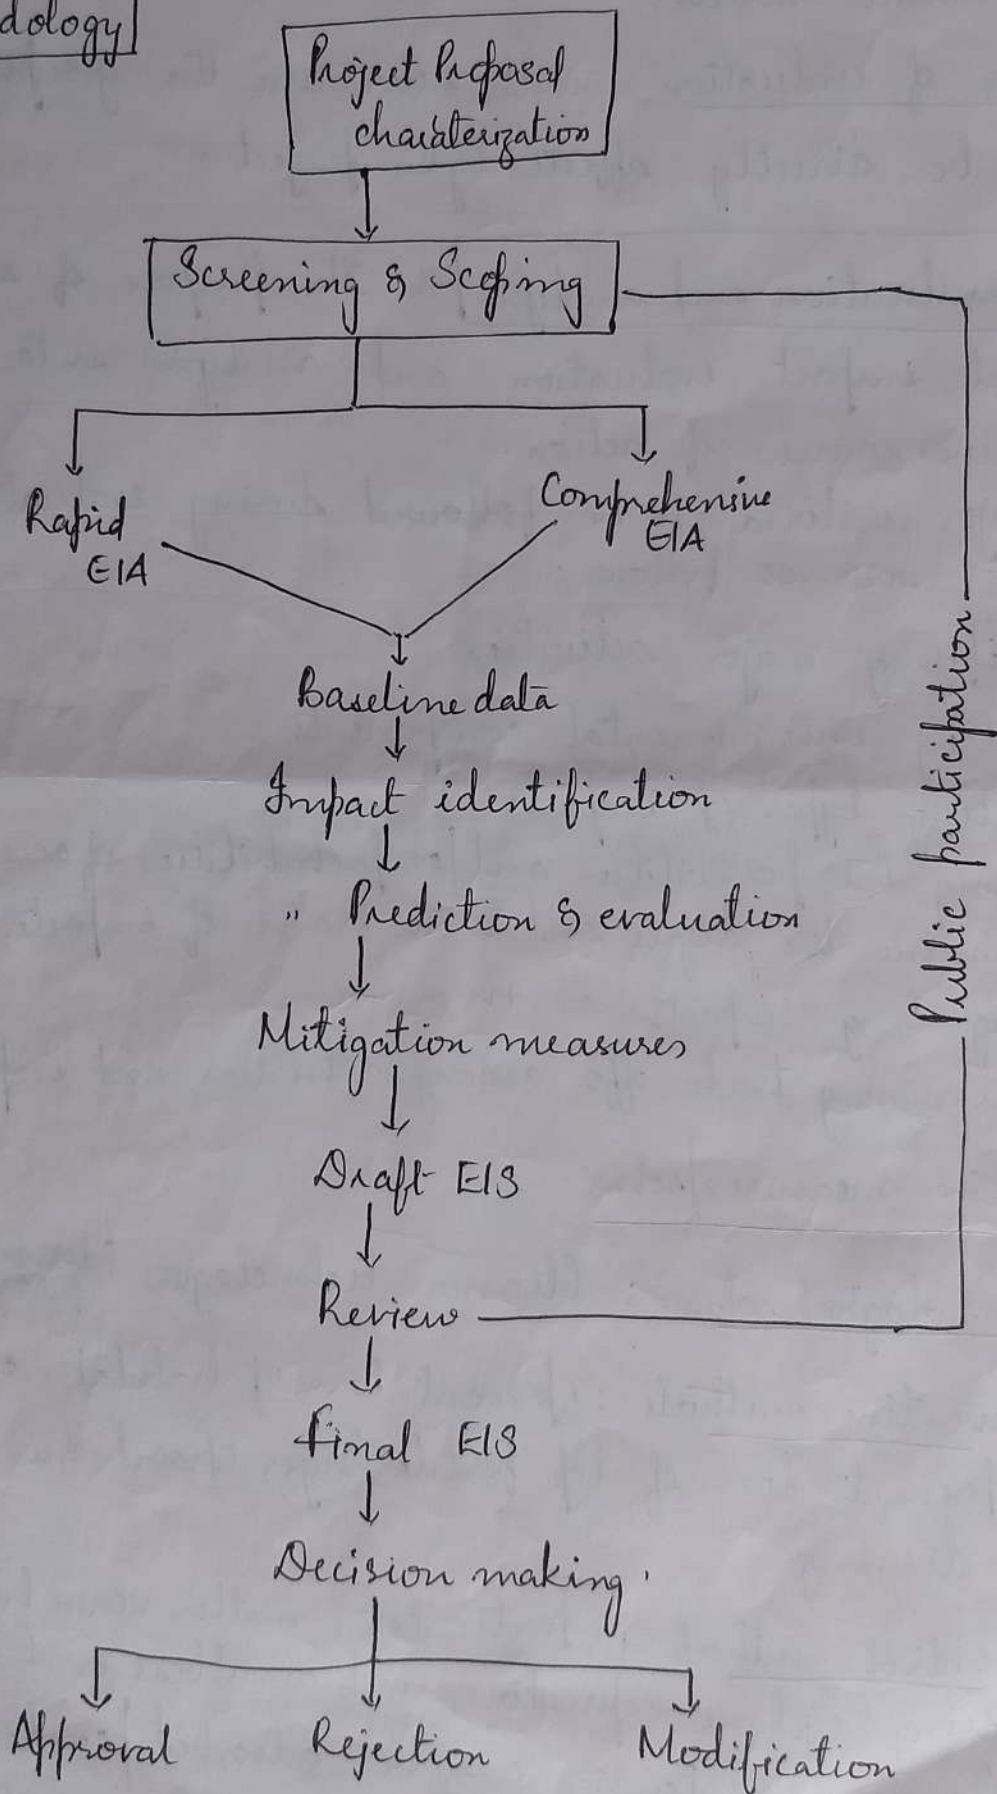 dology
Project Proposal
charaterization
Screening & Scoping
Rapid
EIA
Comprehensive
EIA
Baseline data
Impact identification
" Prediction & evaluation
Mitigation measures
Draft EIS
Review
Public participation
Final EIS
Decision making
Approval
Rejection
Modification